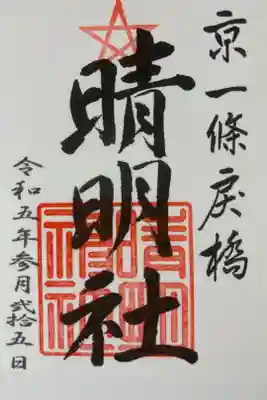 京一條戻橋
晴明社
晴明神社
令和五年参月弐拾五日